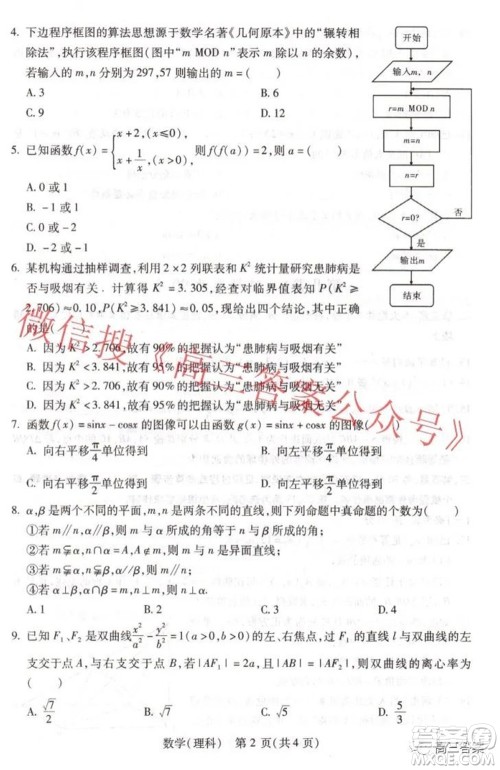 4. 下边程序框图的算法思想源于数学名著《几何原本》中的“辗转相
除法”,执行该程序框图(图中“m MOD n”表示 m 除以 n 的余数),
若输入的 m,n 分别为 297,57 则输出的 m=(　　)
A. 3　　B. 6
C. 9　　D. 12
5. 已知函数 f(x)={x+2,(x≤0), x+1/x,(x>0), 则 f(f(a))=2,则 a=(　　)
A. 0 或 1
B. -1 或 1
C. 0 或 -2
D. -2 或 -1
开始
输入m, n
r=m MOD n
m=n
n=r
r=0?
否
是
输出m
结束
6. 某机构通过抽样调查,利用 2×2 列联表和 K² 统计量研究患肺病是
否与吸烟有关. 计算得 K²=3.305,经查对临界值表知 P(K²≥
2.706)≈0.10,P(K²≥3.841)≈0.05,现给出四个结论,其中正确
的是(　　)
A. 因为 K²>2.706,故有 90%的把握认为“患肺病与吸烟有关”
B. 因为 K²<3.841,故有 95%的把握认为“患肺病与吸烟有关”
C. 因为 K²>2.706,故有 90%的把握认为“患肺病与吸烟无关”
D. 因为 K²<3.841,故有 95%的把握认为“患肺病与吸烟无关”
7. 函数 f(x)=sinx-cosx 的图像可以由函数 g(x)=sinx+cosx 的图像(　　)
A. 向右平移π/4单位得到　　B. 向左平移π/4单位得到
C. 向右平移π/2单位得到　　D. 向左平移π/2单位得到
8. α,β 是两个不同的平面,m,n 是两条不同的直线,则下列命题中真命题的个数为(　　)
①若 m∥n,α∥β,则 m 与 α 所成的角等于 n 与 β 所成的角;
②若 m⊊α,n∩α=A,A∉m,则 m,n 是异面直线;
③若 m⊊α,n⊊β,α∥β,则 m∥n;
④若 α⊥β,m⊥α,n⊥β,则 m⊥n.
A. 1　　B. 2　　C. 3　　D. 4
9. 已知 F₁、F₂ 是双曲线x²/a²-y²/b²=1(a>0,b>0)的左、右焦点,过 F₁ 的直线 l 与双曲线的左
支交于点 A,与右支交于点 B,若|AF₁|=2a,且|AB|=|AF₂|,则双曲线的离心率为
(　　)
A. √7/2　　B. √7　　C. √5　　D. 5/3
数学(理科)　第 2 页(共 4 页)
微信搜《高三答案公众号》
高三答案